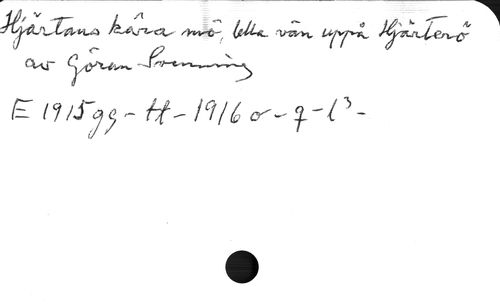 Hjärtans kära mö, lilla vän uppå Hjärterö
av Göran Svenning
E 1915 gg - tt - 1916 o - q - l³ -